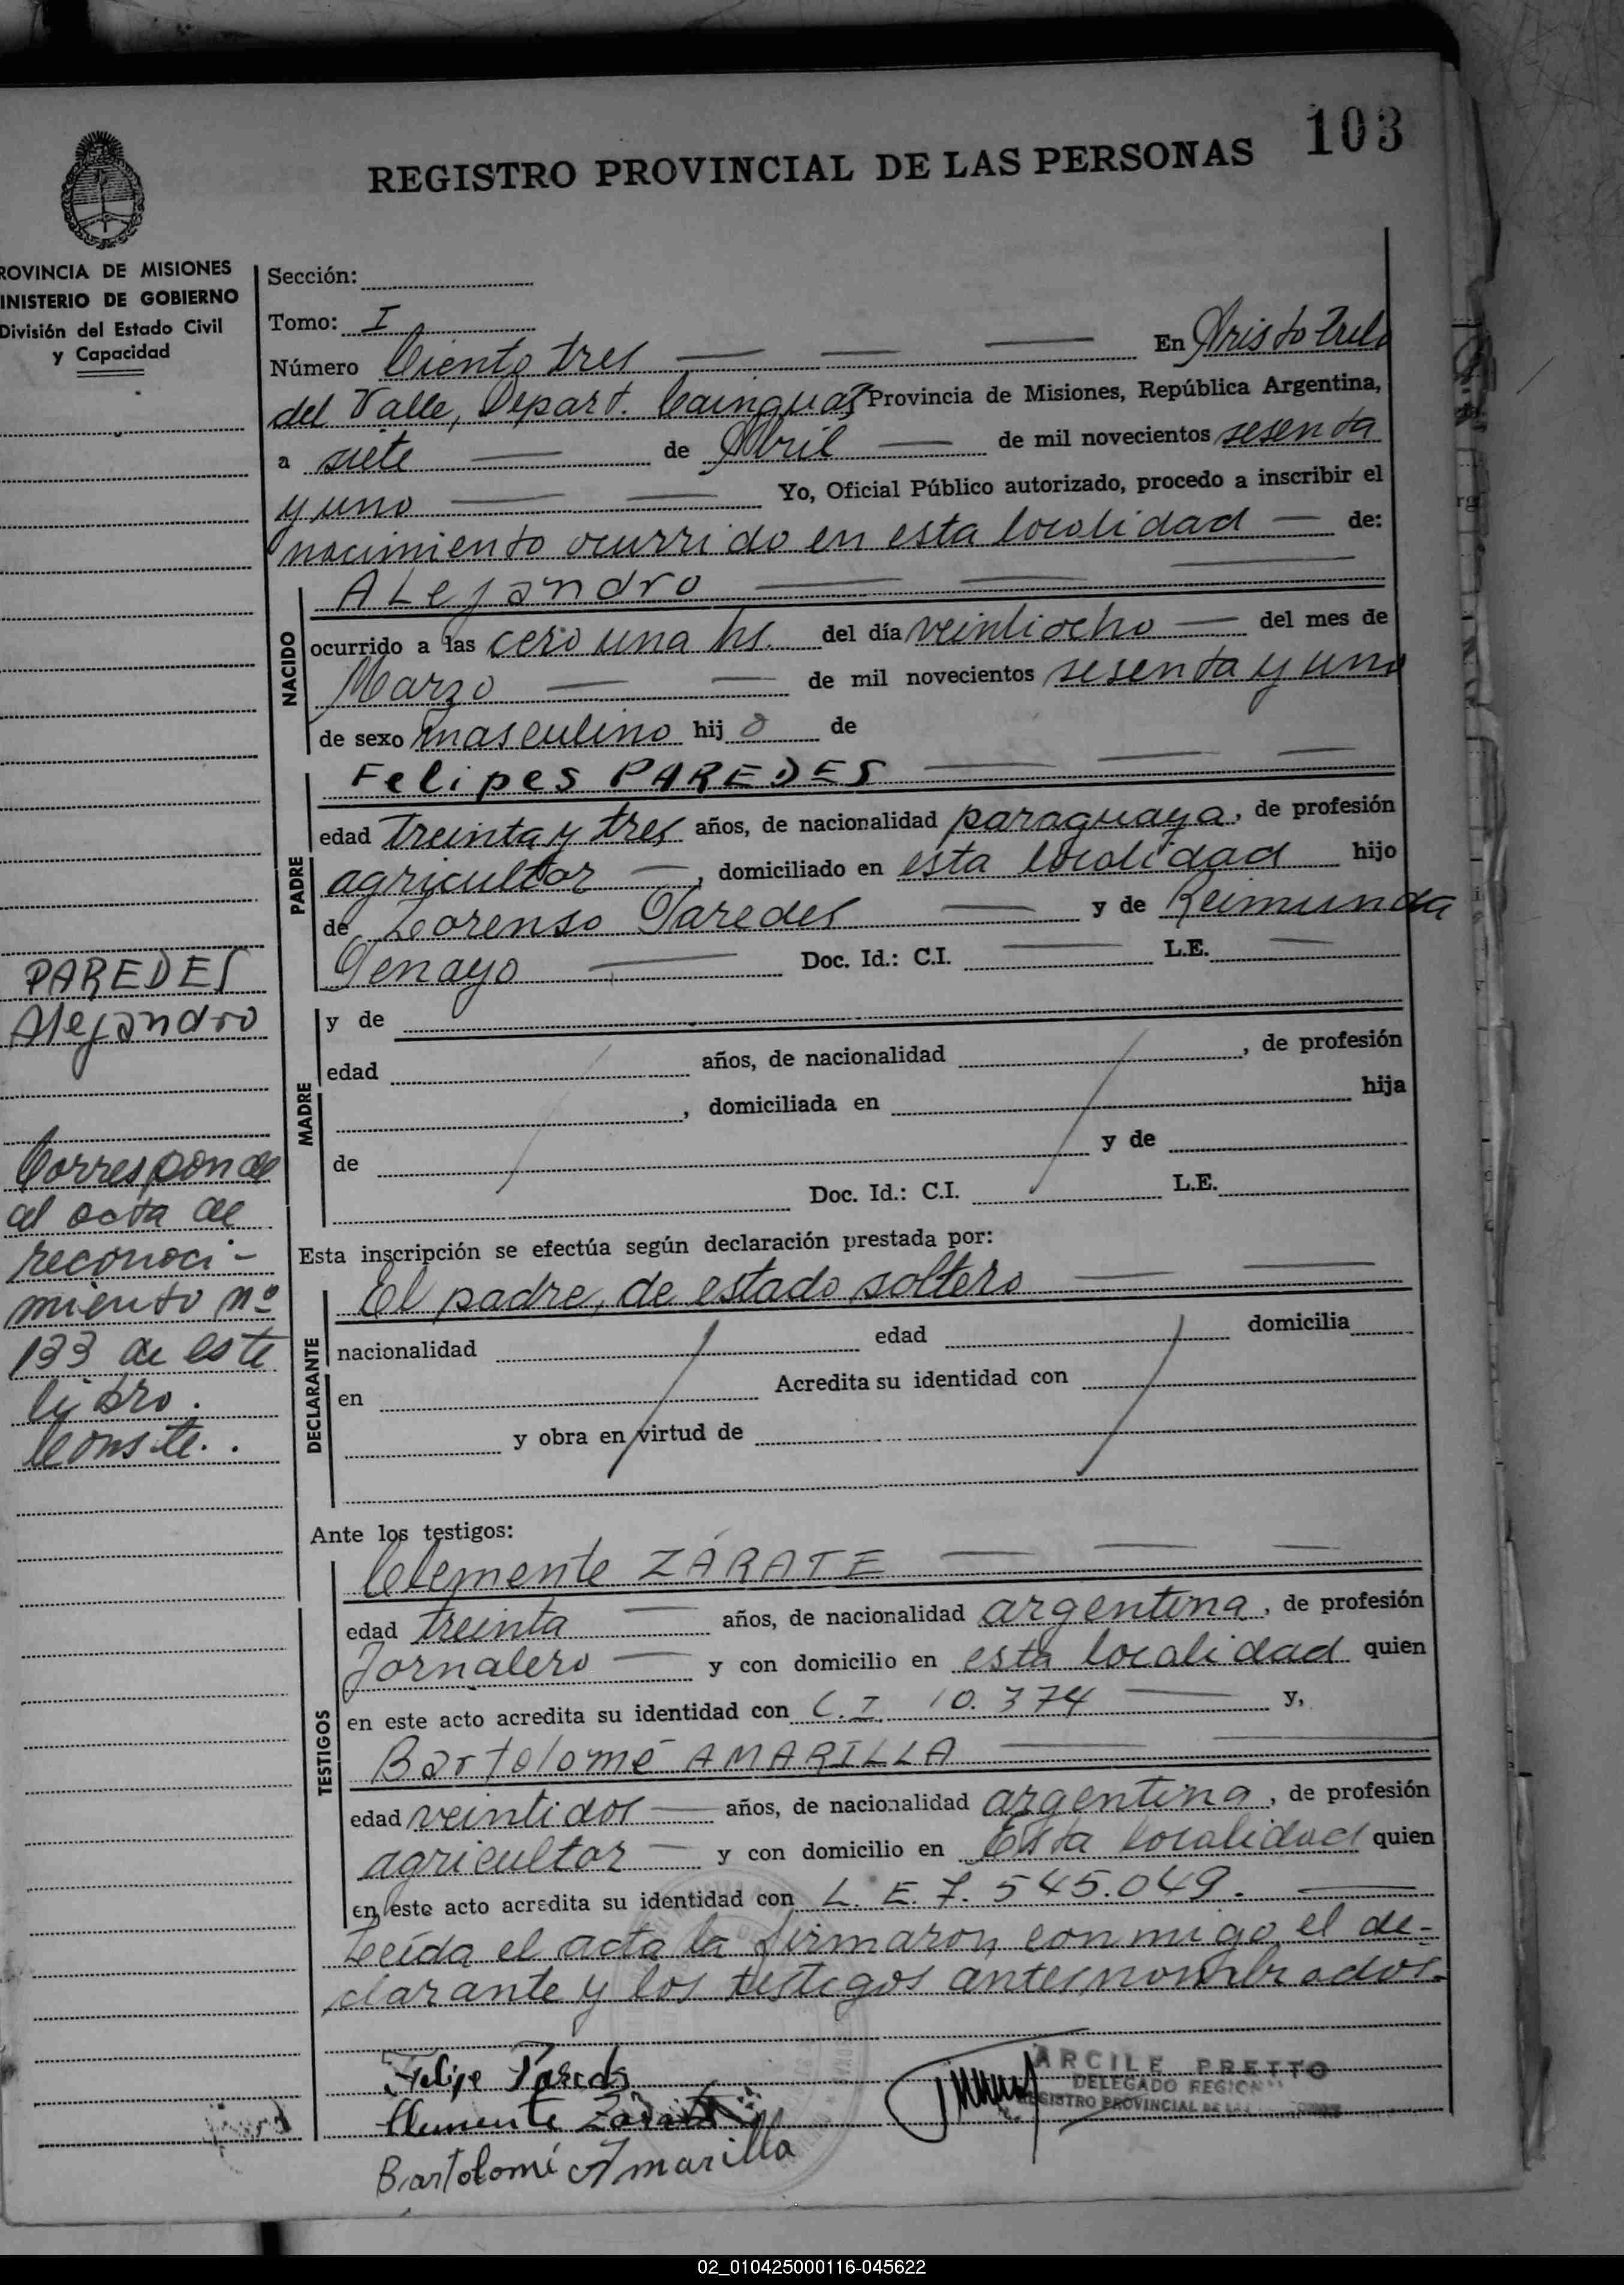 103
REGISTRO PROVINCIAL DE LAS PERSONAS
ROVINCIA DE MISIONES
INISTERIO DE GOBIERNO
División del Estado Civil
y Capacidad
Sección:
Tomo: I
Número Ciento tres En Aristobulo
del Valle, Depart. Cainguas Provincia de Misiones, República Argentina,
a siete de Abril de mil novecientos sesenta
y uno Yo, Oficial Público autorizado, procedo a inscribir el
nacimiento ocurrido en esta localidad de:
NACIDO
ALejandro
ocurrido a las cero una hs. del día veintiocho del mes de
Marzo de mil novecientos sesenta y uno
de sexo masculino hij o de
PADRE
Felipes PAREDES
edad treinta y tres años, de nacionalidad paraguaya, de profesión
agricultor, domiciliado en esta localidad hijo
de Lorenso Paredes y de Reimunda
Penayo Doc. Id.: C.I. L.E.
PAREDES
Alejandro
MADRE
y de
edad años, de nacionalidad , de profesión
, domiciliada en hija
de y de
Doc. Id.: C.I. L.E.
Corresponde
al acta de
reconoci-
miento nº
133 de este
libro.
Conste.
Esta inscripción se efectúa según declaración prestada por:
DECLARANTE
El padre, de estado soltero
nacionalidad edad domicilia
en Acredita su identidad con
y obra en virtud de
Ante los testigos:
TESTIGOS
Clemente ZÁRATE
edad treinta años, de nacionalidad argentina, de profesión
Jornalero y con domicilio en esta localidad quien
en este acto acredita su identidad con C.I. 10.374 y,
Bartolomé AMARILLA
edad veintidos años, de nacionalidad argentina, de profesión
agricultor y con domicilio en Esta localidad quien
en este acto acredita su identidad con L.E. 7.545.049.
Leída el acta la firmaron conmigo el de-
clarante y los testigos antes nombrados.
Felipe Paredes
Clemente Zarate
Bartolomé Amarilla
ARCILE PRETTO
DELEGADO REGION
REGISTRO PROVINCIAL DE LAS
02_010425000116-045622